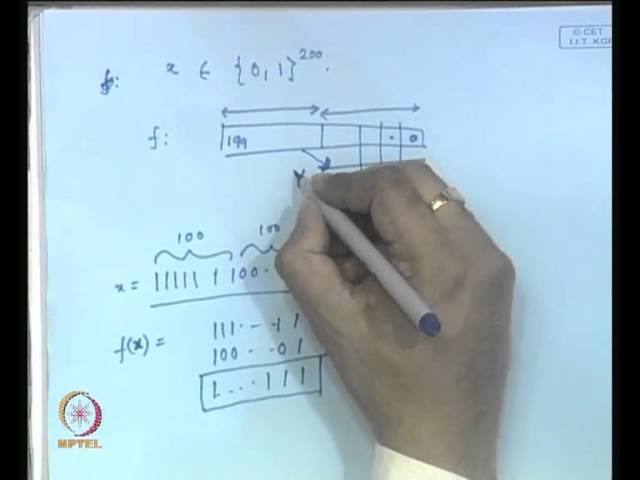 © CET
I.I.T. KGP
x ∈ {0, 1}^200.
f: 199 0
100 100
x = 1111111100..
f(x) = 111. - - 11
100 - - 01
1...111
NPTEL